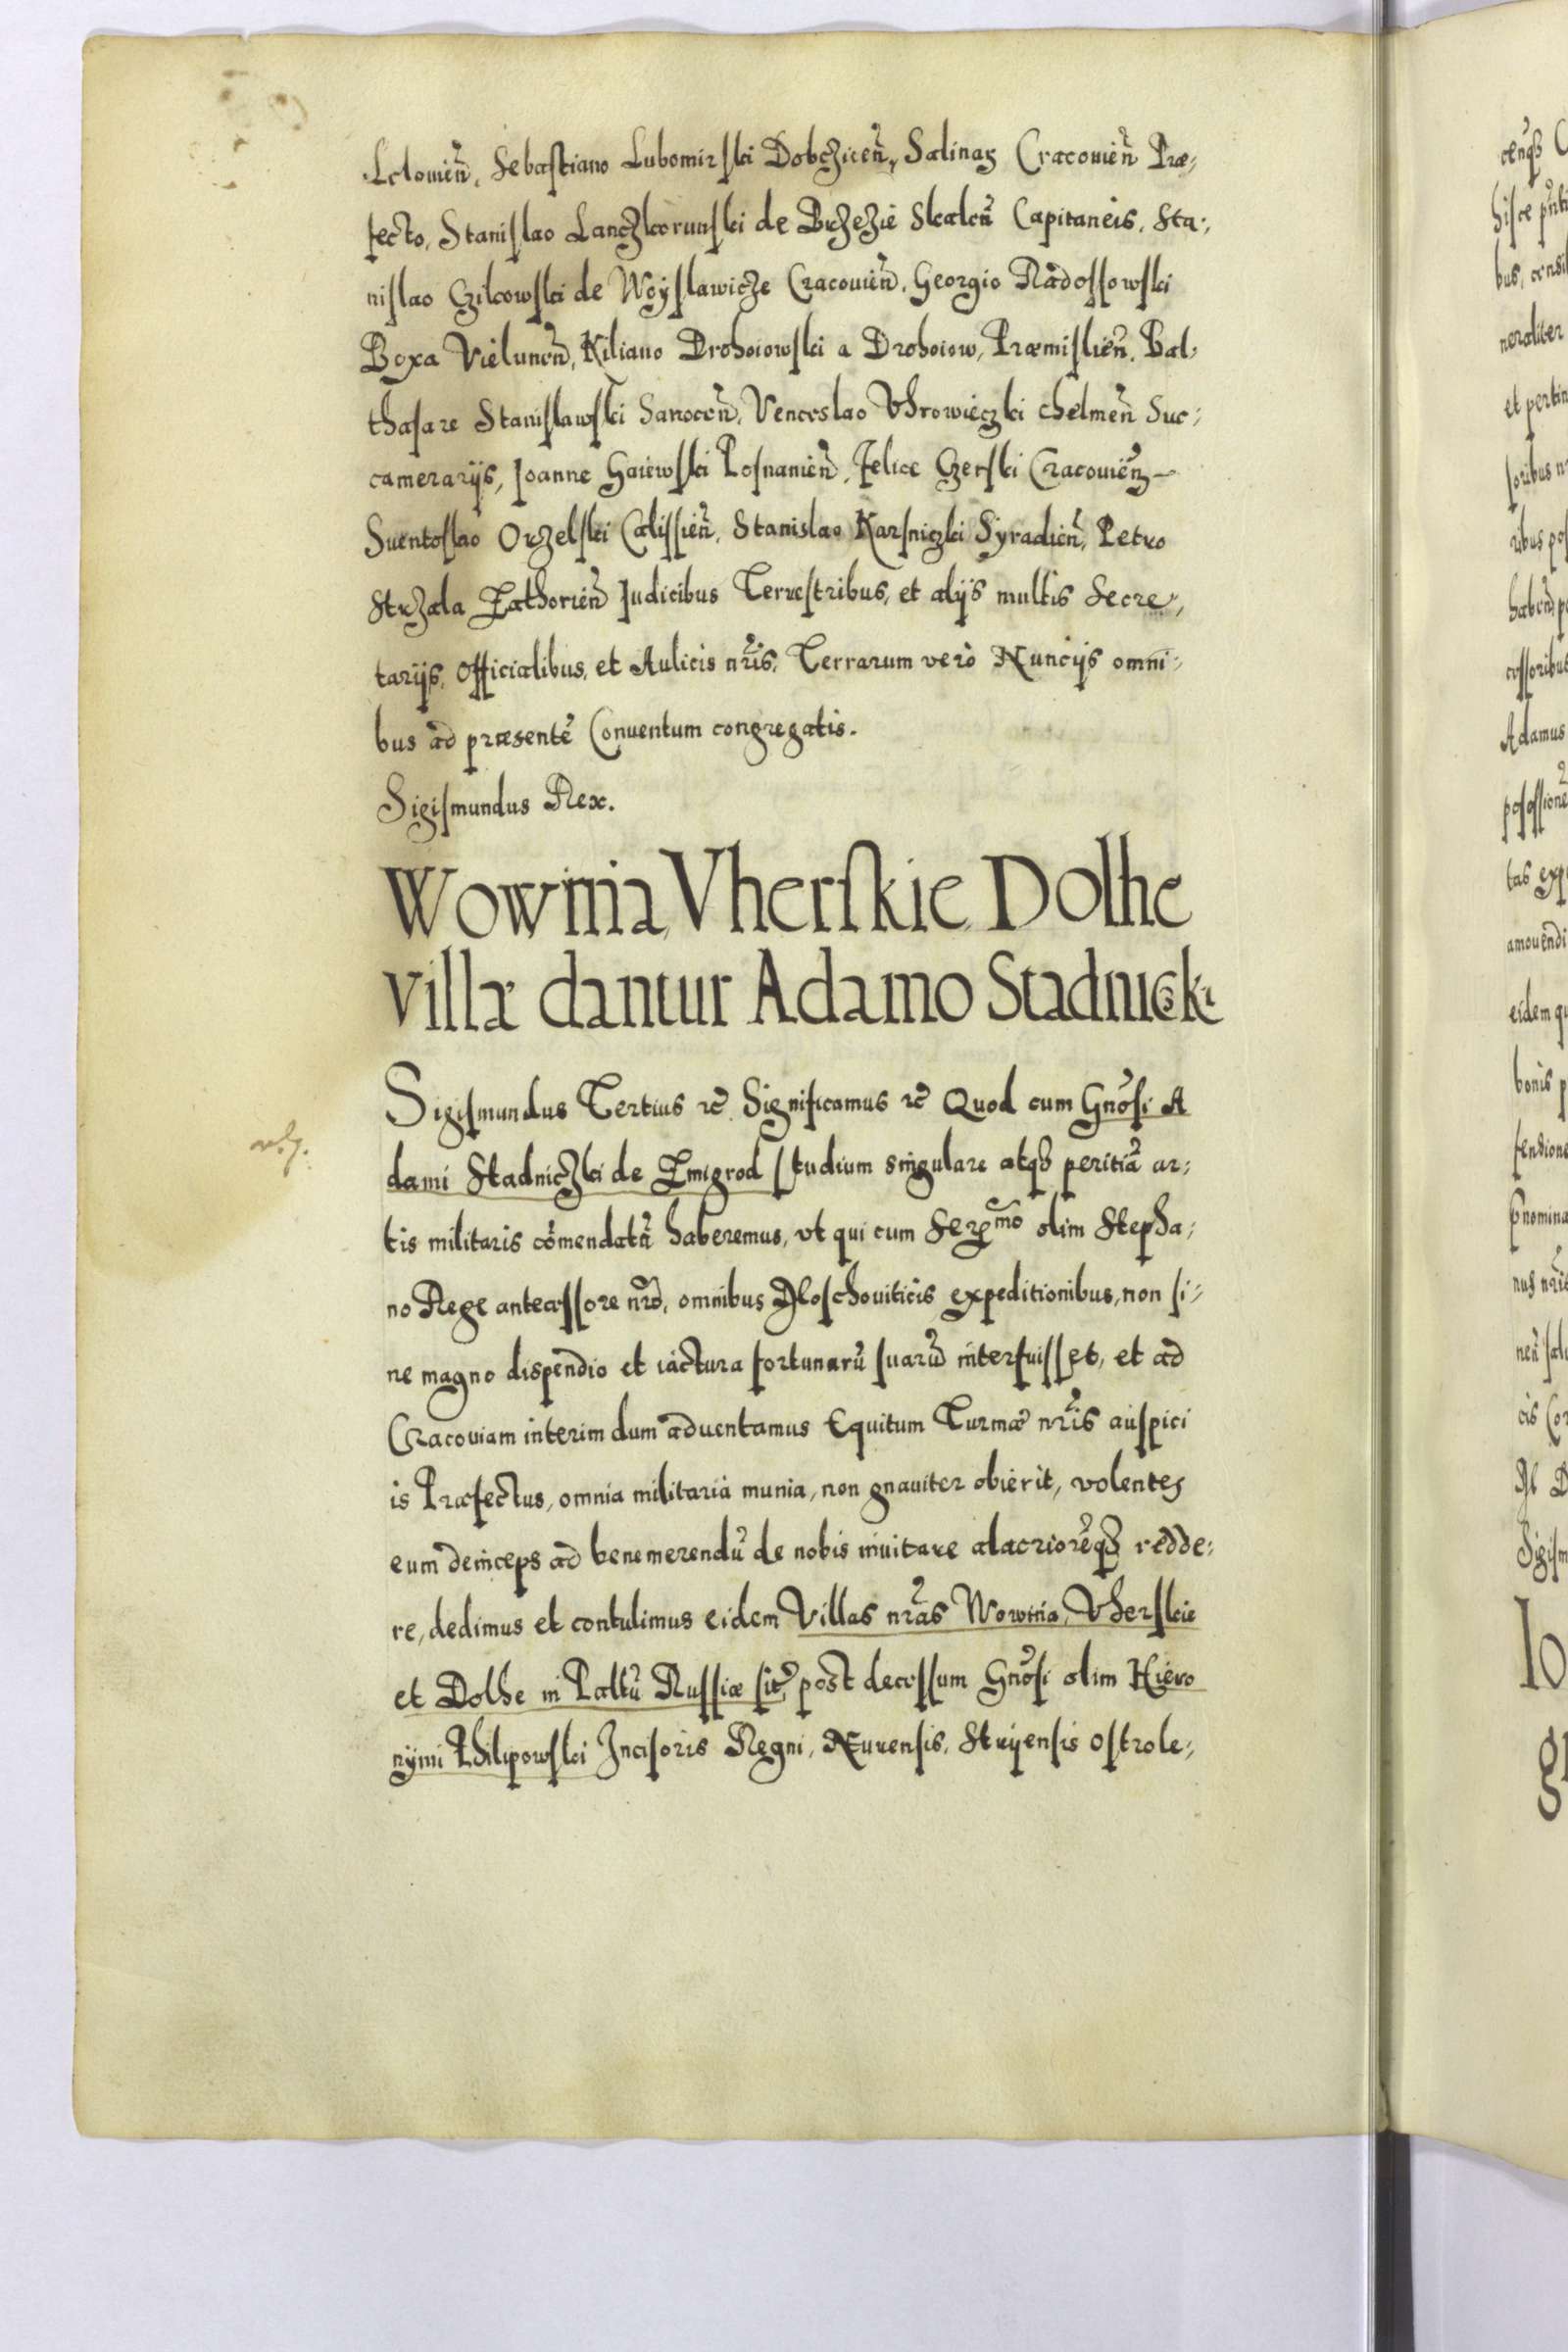 Lelouien̄, Sebastiano Lubomirski Dobczicen̄, Salinaȝ Cracouien̄ Præ-
fecto, Stanislao Lanczkorunski de Brzezie Skalen̄ Capitaneis, Sta-
nislao Czikowski de Woyslawicze Cracouien̄, Georgio Radossowski
Boxa Vielunen̄, Kiliano Drohoiowski a Drohoiow, Præmislien̄, Bal-
thasare Stanislawski Sanocen̄, Venceslao Vhrowieczki chelmen̄ Suc-
camerarijs, Joanne Gaiewski Posnanien̄, Felice Czerski Cracouien̄
Suentoslao Orzelski Calissien̄, Stanislao Karsniczki Syradien̄, Petro
Strzala Zathorien̄ Judicibus Terrestribus, et alijs multis Secre-
tarijs, Officialibus, et Aulicis nr̄is, Terrarum vero Nuncijs omni-
bus ad præsentē Conuentum congregatis.
Sigismundus Rex.
Wownia, Vherskie, Dolhe
villæ dantur Adamo Stadniczki
Sigismundus Tertius etc̄ Significamus etc̄ Quod cum Gnōsi A
dami Stadniczki de Zmigrod studium singulare atqȝ peritiā ar-
tis militaris cōmendatā haberemus, vt qui cum Serᵐᵒ olim Stepha-
no Rege antecessore nr̄o, omnibus Moschouiticis expeditionibus, non si-
ne magno dispendio et iactura fortunarū suarū interfuisset, et ad
Cracouiam interim dum aduentamus Equitum Turmæ nr̄is auspici
is Præfectus, omnia militaria munia, non gnauiter obierit, volentes
eum deinceps ad benemerendū de nobis inuitare alacriorēqȝ redde-
re, dedimus et contulimus eidem Villas nr̄as Wownia, Vherskie
et Dolhe in Palltū Russiæ sit̄, post decessum Gnōsi olim Hiero
nymi Philipowski Incisoris Regni, Nurensis, Stryensis Ostrole-